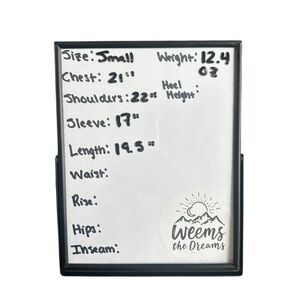 Size: Small
Weight: 12.4 oz
Chest: 21"
Heel Height:
Shoulders: 22"
Sleeve: 17"
Length: 19.5"
Waist:
Rise:
Hips:
Inseam:
Weems
the Dreams